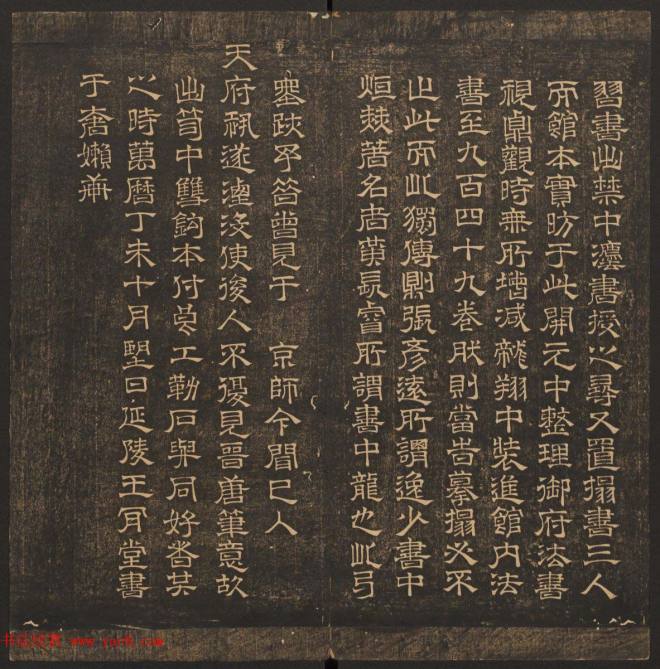 習書出禁中灋書授之尋又置搨書三人
而館本實昉于此開元中整理御府法書
視貞觀時無所增減龍翔中裝進館內法
書至九百四十九卷然則當旹摹搨必不
止此而此獨傳則張彥遠所謂逸少書中
烜赫著名者黃長睿所謂書中龍也此弓
墨跡予昔曾見于 京師今聞已入
天府祕遂湮沒使後人不復見晉唐筆意故
出笥中雙鈎本付良工勒石與同好者共
之時萬曆丁未十月望日延陵王肯堂書
于嬾齋